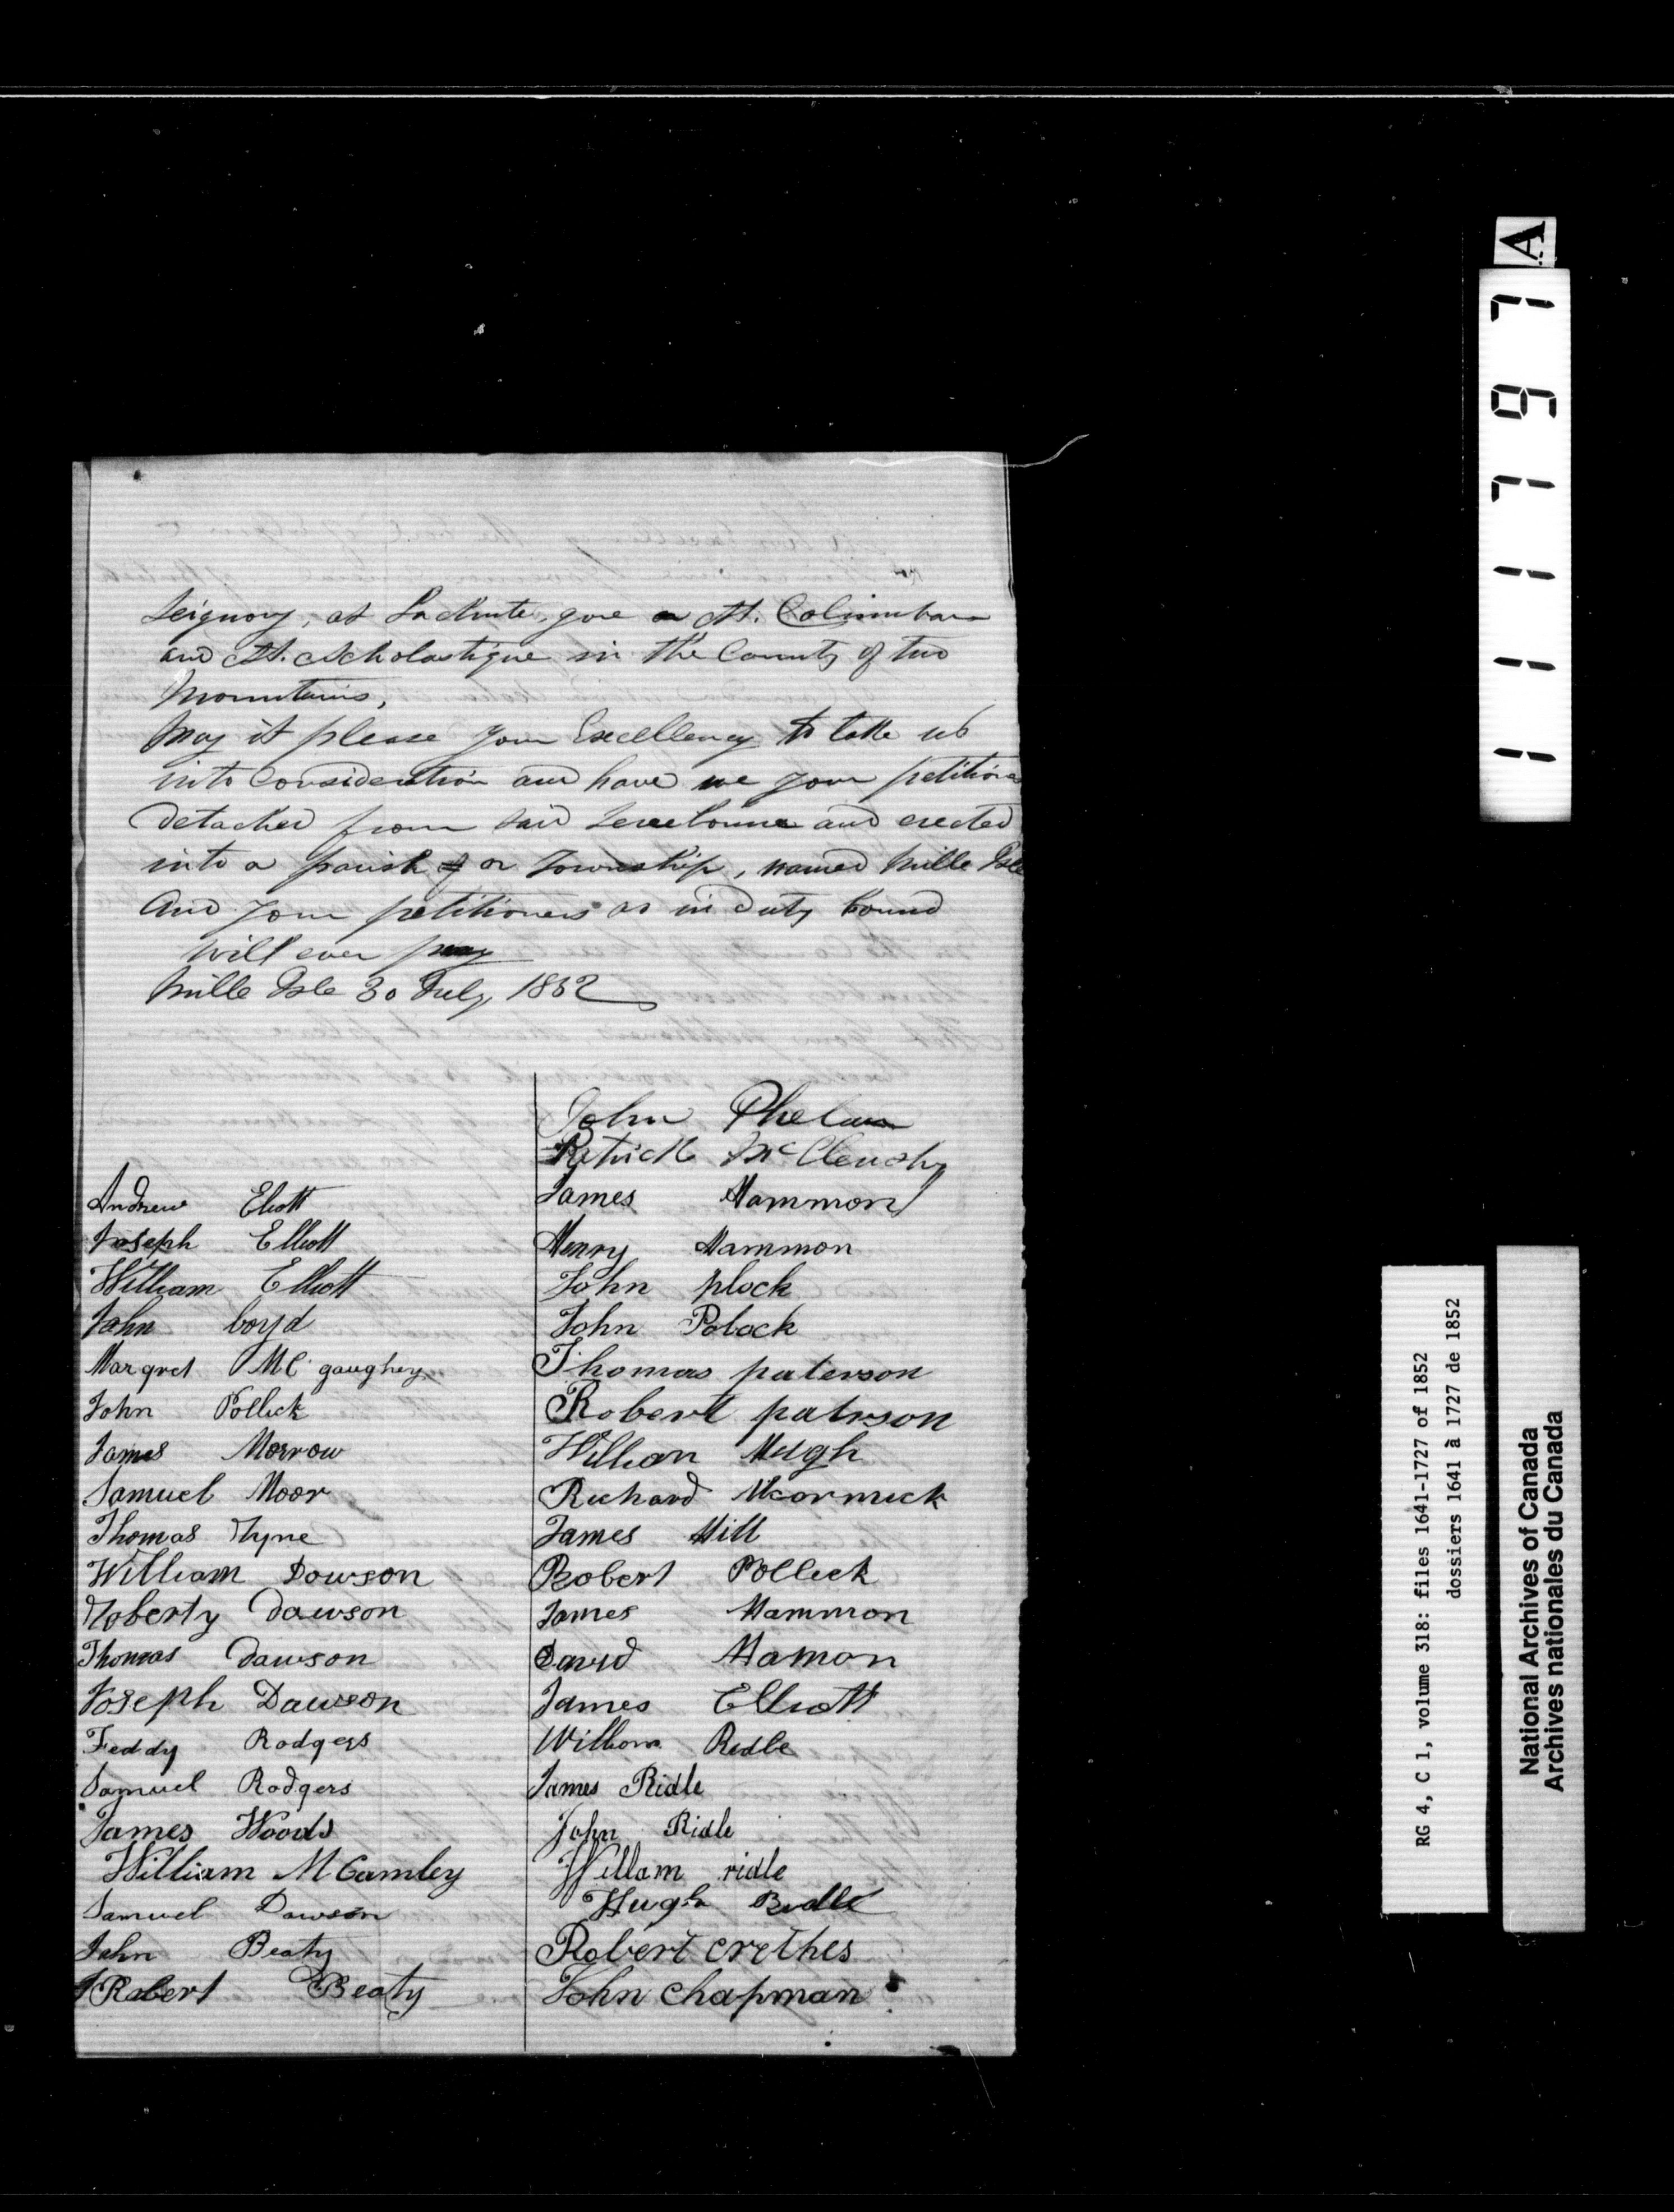 Seignory, at Lachute, gore St. Columban
and St. Scholastique in the County of two
Mountains,
May it please your Excellency to take us
into Consideration and have we your petitione
detached from said Terrebonne and erected
into a parish or Township, named Mille Isle
And your petitioners as in duty bound
will ever pray
Mille Isle 30 July, 1852
Andrew Eliott
Joseph Elliott
William Elliott
John boyd
Margret MC gaughey
John Pollick
James Morrow
Samuel Moor
Thomas Tyne
William Dowson
Roberty Dawson
Thomas Dawson
Joseph Dawson
Feddy Rodgers
Samuel Rodgers
James Woods
William MCamley
Samuel Dawson
John Beaty
Robert Beaty
John Phelan
Patrick
James Hammon
Henry Hammon
John plock
John Polock
Thomas paterson
Robert patrson
William Hugh
Richard Mcormick
James Hill
Robert Polleck
James Hammon
David Hamon
James Elliott
William Redle
James Ridle
John Ridle
Willam ridle
Hugh
Robert crethes
John Chapman
111797
A
RG 4, C 1, volume 318: files 1641-1727 of 1852
dossiers 1641 à 1727 de 1852
National Archives of Canada
Archives nationales du Canada